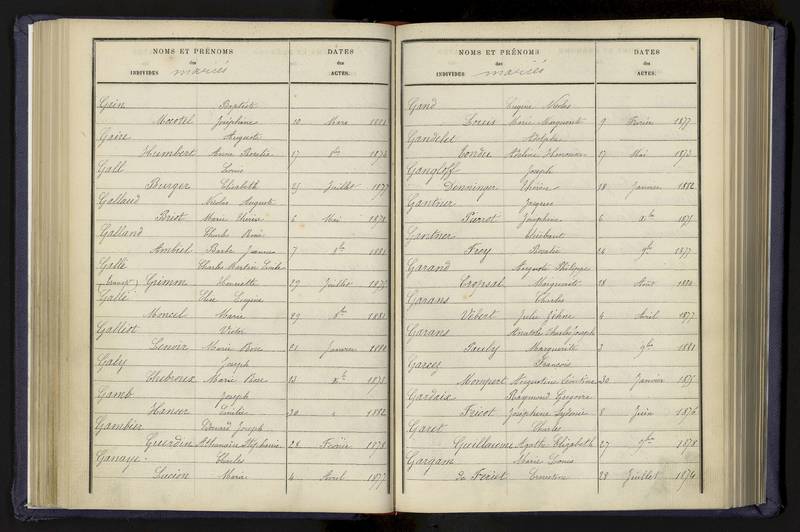 NOMS ET PRÉNOMS DATES
des des
INDIVIDUS mariés ACTES.
Gain Baptiste
Marotel Joséphine 10 Mars 1881
Gaire Auguste
Humbert Anne Rosalie 17 8bre
Gall Louis
Burger Elisabeth 25 Juillet 1877
Gallaud Nicolas Auguste
Briot Marie Thérèse 6 Mai 1878
Galland Charles René
Ambiel Barbe Jeanne 7 8bre 1881
Gallé Charles Martin Emile
Grimm Henriette 29 Juillet 1875
Gallé Elie Eugène
Moncel Marie 29 8bre 1881
Galliot Victor
Lenoir Marie Rose 21 Janvier 1880
Galy Joseph
Chibroux Marie Rose 23 Xbre 1878
Gamb Joseph
Hanser Emilie 30 " 1882
Gambier Joseph
Guerdin Stéphanie 28 Février 1878
Ganaye Charles
Lucion Maria 4 Avril 1877
NOMS ET PRÉNOMS DATES
des des
INDIVIDUS mariés ACTES.
Gand Eugène Nicolas
Louis Marie Marguerite 9 Février 1877
Gandelet Adolphe
Tondu Adeline 17 Mai 1873
Gangloff Joseph
Denninger Thérèse 18 Janvier 1882
Gantner Jacques
Pierrot Joséphine 6 Xbre 1875
Gantner Thiébaut
Frey Rosalie 26 9bre 1877
Garand Auguste Philippe
Cropsal Marguerite 28 Août 1880
Garans Charles
Vebert Julie 4 Avril 1877
Garans Anatole Charles Joseph
Pauly Marguerite 3 9bre 1881
Garcez François
Mompert Augustine Léontine 30 Janvier 1875
Gardais Raymond Grégoire
Fricot Joséphine Sydonie 8 Juin 1876
Garet Charles
Guillaume Agathe Elizabeth 27 9bre 1878
Gargam Marie Louis
de Fériet Ernestine 23 Juillet 1874